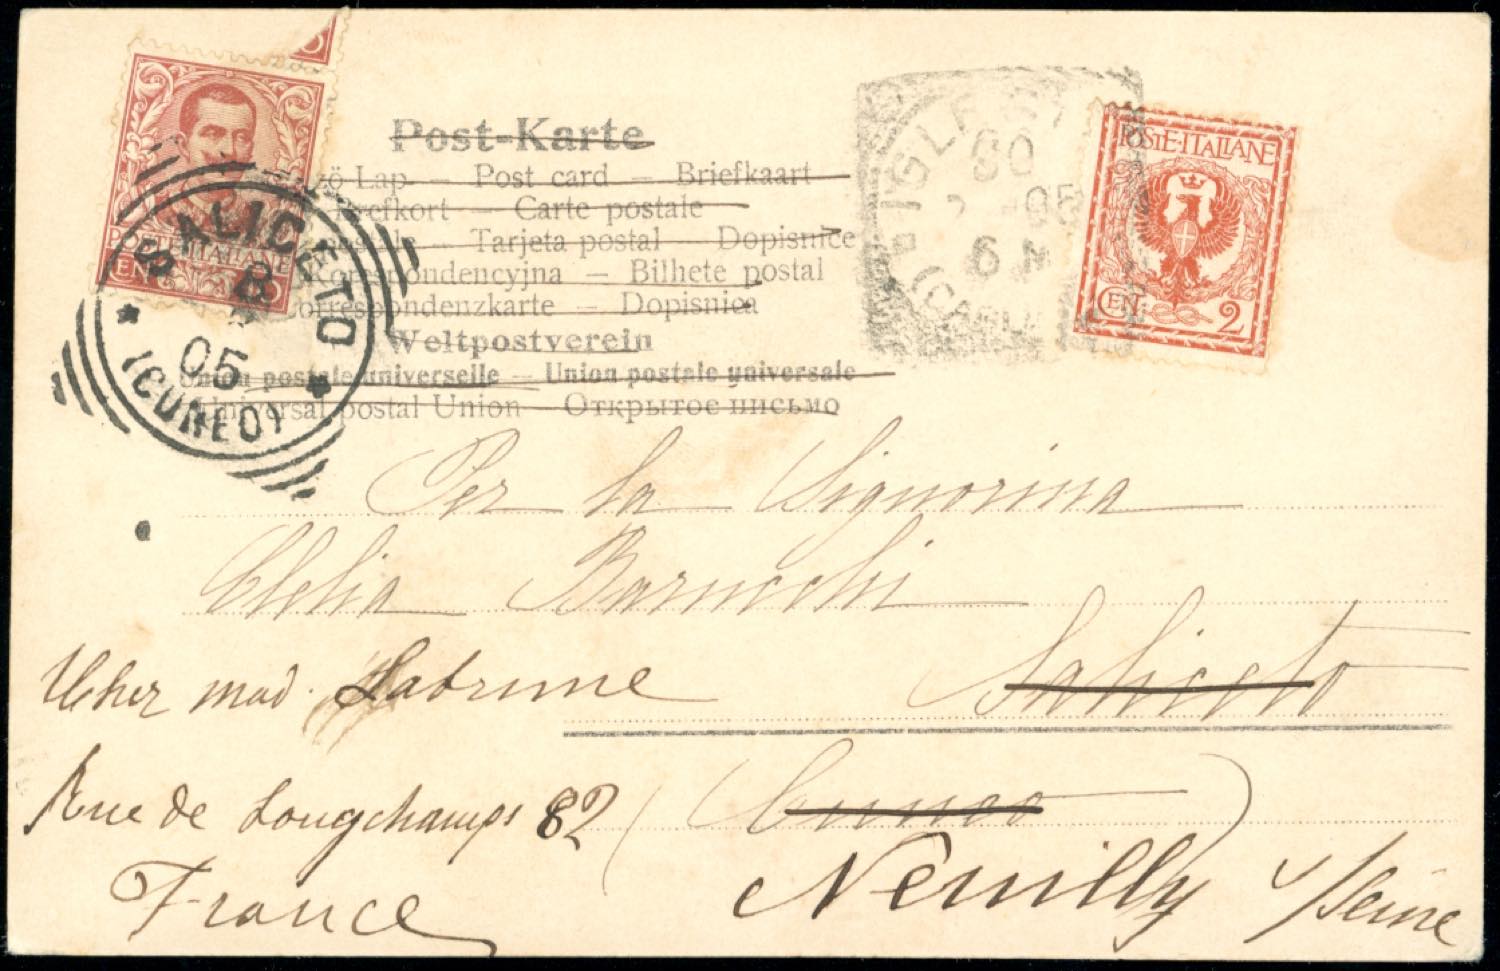 Post-Karte
zö-Lap — Post card — Briefkaart
Brefkort — Carte postale
postale — Tarjeta postal — Dopisnice
Korespondencyjna — Bilhete postal
Correspondenzkarte — Dopisnica
Weltpostverein
Union postale universelle — Union postale universale
Universal postal Union — Открытое письмо
POSTE ITALIANE
CENT. 10
SALICETO
8
05
(CUNEO)
IGLE
30
05
6 M
(CAGLI
POSTE·ITALIANE
CENT. 2
Per la Signorina
Clelia
Saliceto
Cher mad.
Rue de Longchamps 82
(Cuneo)
Neuilly s/Seine
France